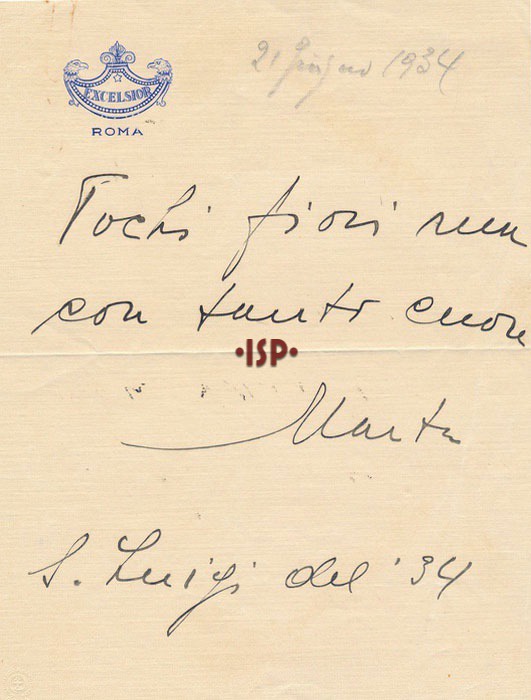 EXCELSIOR
ROMA
21 Giugno 1934
Pochi fiori ma
con tanto cuore
•ISP•
Marta
S. Luigi del '34